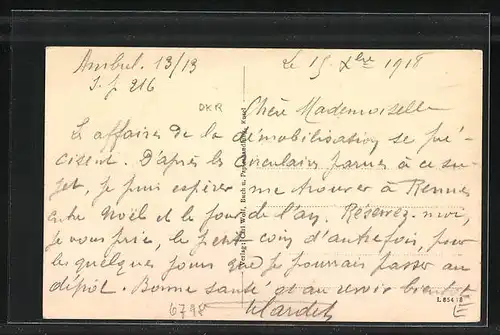 Ambul. 13/13
S. P. 216
Le 15 Xbre 1918
DKR
Chère Mademoiselle
Les affaires de la démobilisation se pré-
cisent. D'après les circulaires parues à ce su-
jet, je puis espérer me trouver à Rennes
entre Noël et le jour de l'an. Réservez-moi,
je vous prie, le petit coin d'autrefois, pour
les quelques jours que je pourrais passer au
dépôt. Bonne santé et au revoir bientôt
L 854/18
6798
E